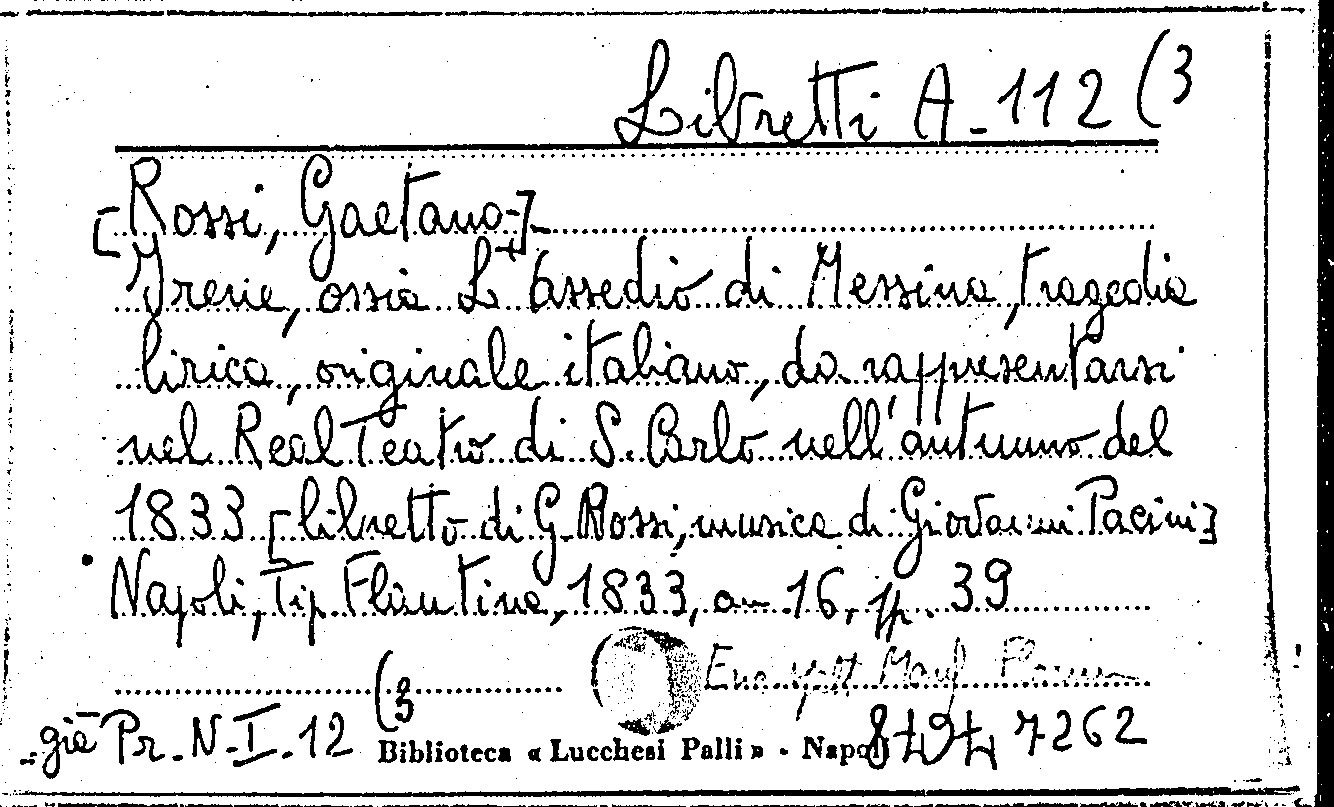 Libretti A-112 (3
[Rossi, Gaetano-]-
Irene, ossia L'assedio di Messina, tragedia
lirica, originale italiano, da rappresentarsi
nel Real Teatro di S. Carlo nell'autunno del
1833 [libretto di G. Rossi, musica di Giovanni Pacini]
Napoli, Tip. Flautina, 1833, in 16, pp. 39
(3
già Pr. N-I-12
Biblioteca « Lucchesi Palli » - Napoli
7262